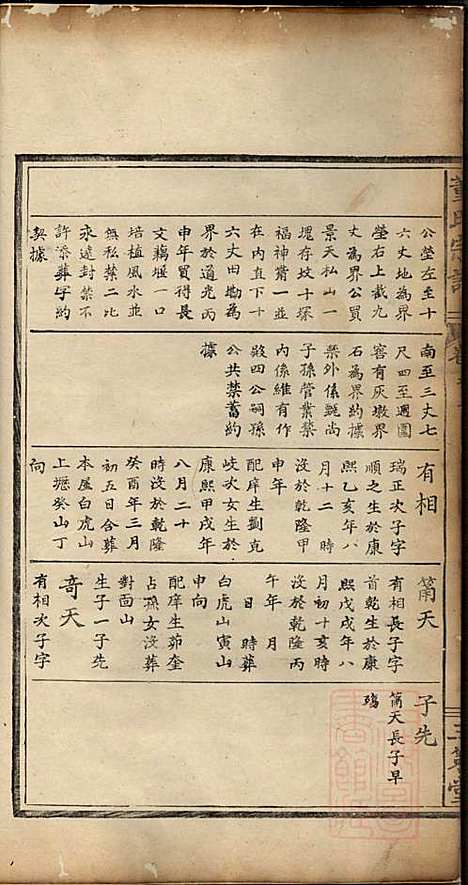 公塋左至十
六丈地為界
塋右上截九
丈為界公買
景天私山一
塊存坟十塚
福神嵜一並
在內直下十
六丈田勘為
界於道光丙
申年買得長
文藕堰一口
培植風水並
無私葬二比
永遠封禁不
許添葬字約
契據
南至三丈七
尺四至週圍
窖有灰墩界
石為界約據
禁外係甑尚
子孫管業禁
內係維有作
毅四公嗣孫
公共禁蓄約
據
有相
瑞正次子字
順之生於康
熙乙亥年八
月十二 時
沒於乾隆甲
申年
配庠生劉克
岐次女生於
康熙甲戌年
八月二十
時沒於乾隆
癸酉年三月
初五日合葬
本屋白虎山
上壢癸山丁
向
簫天
有相長子字
首乾生於康
熙戊戌年八
月初十亥時
沒於乾隆丙
午年 月
日 時葬
白虎山寅山
申向
配庠生茆奎
占孫女沒葬
對面山
生子一子先
奇天
有相次子字
子先
簫天長子早
殤